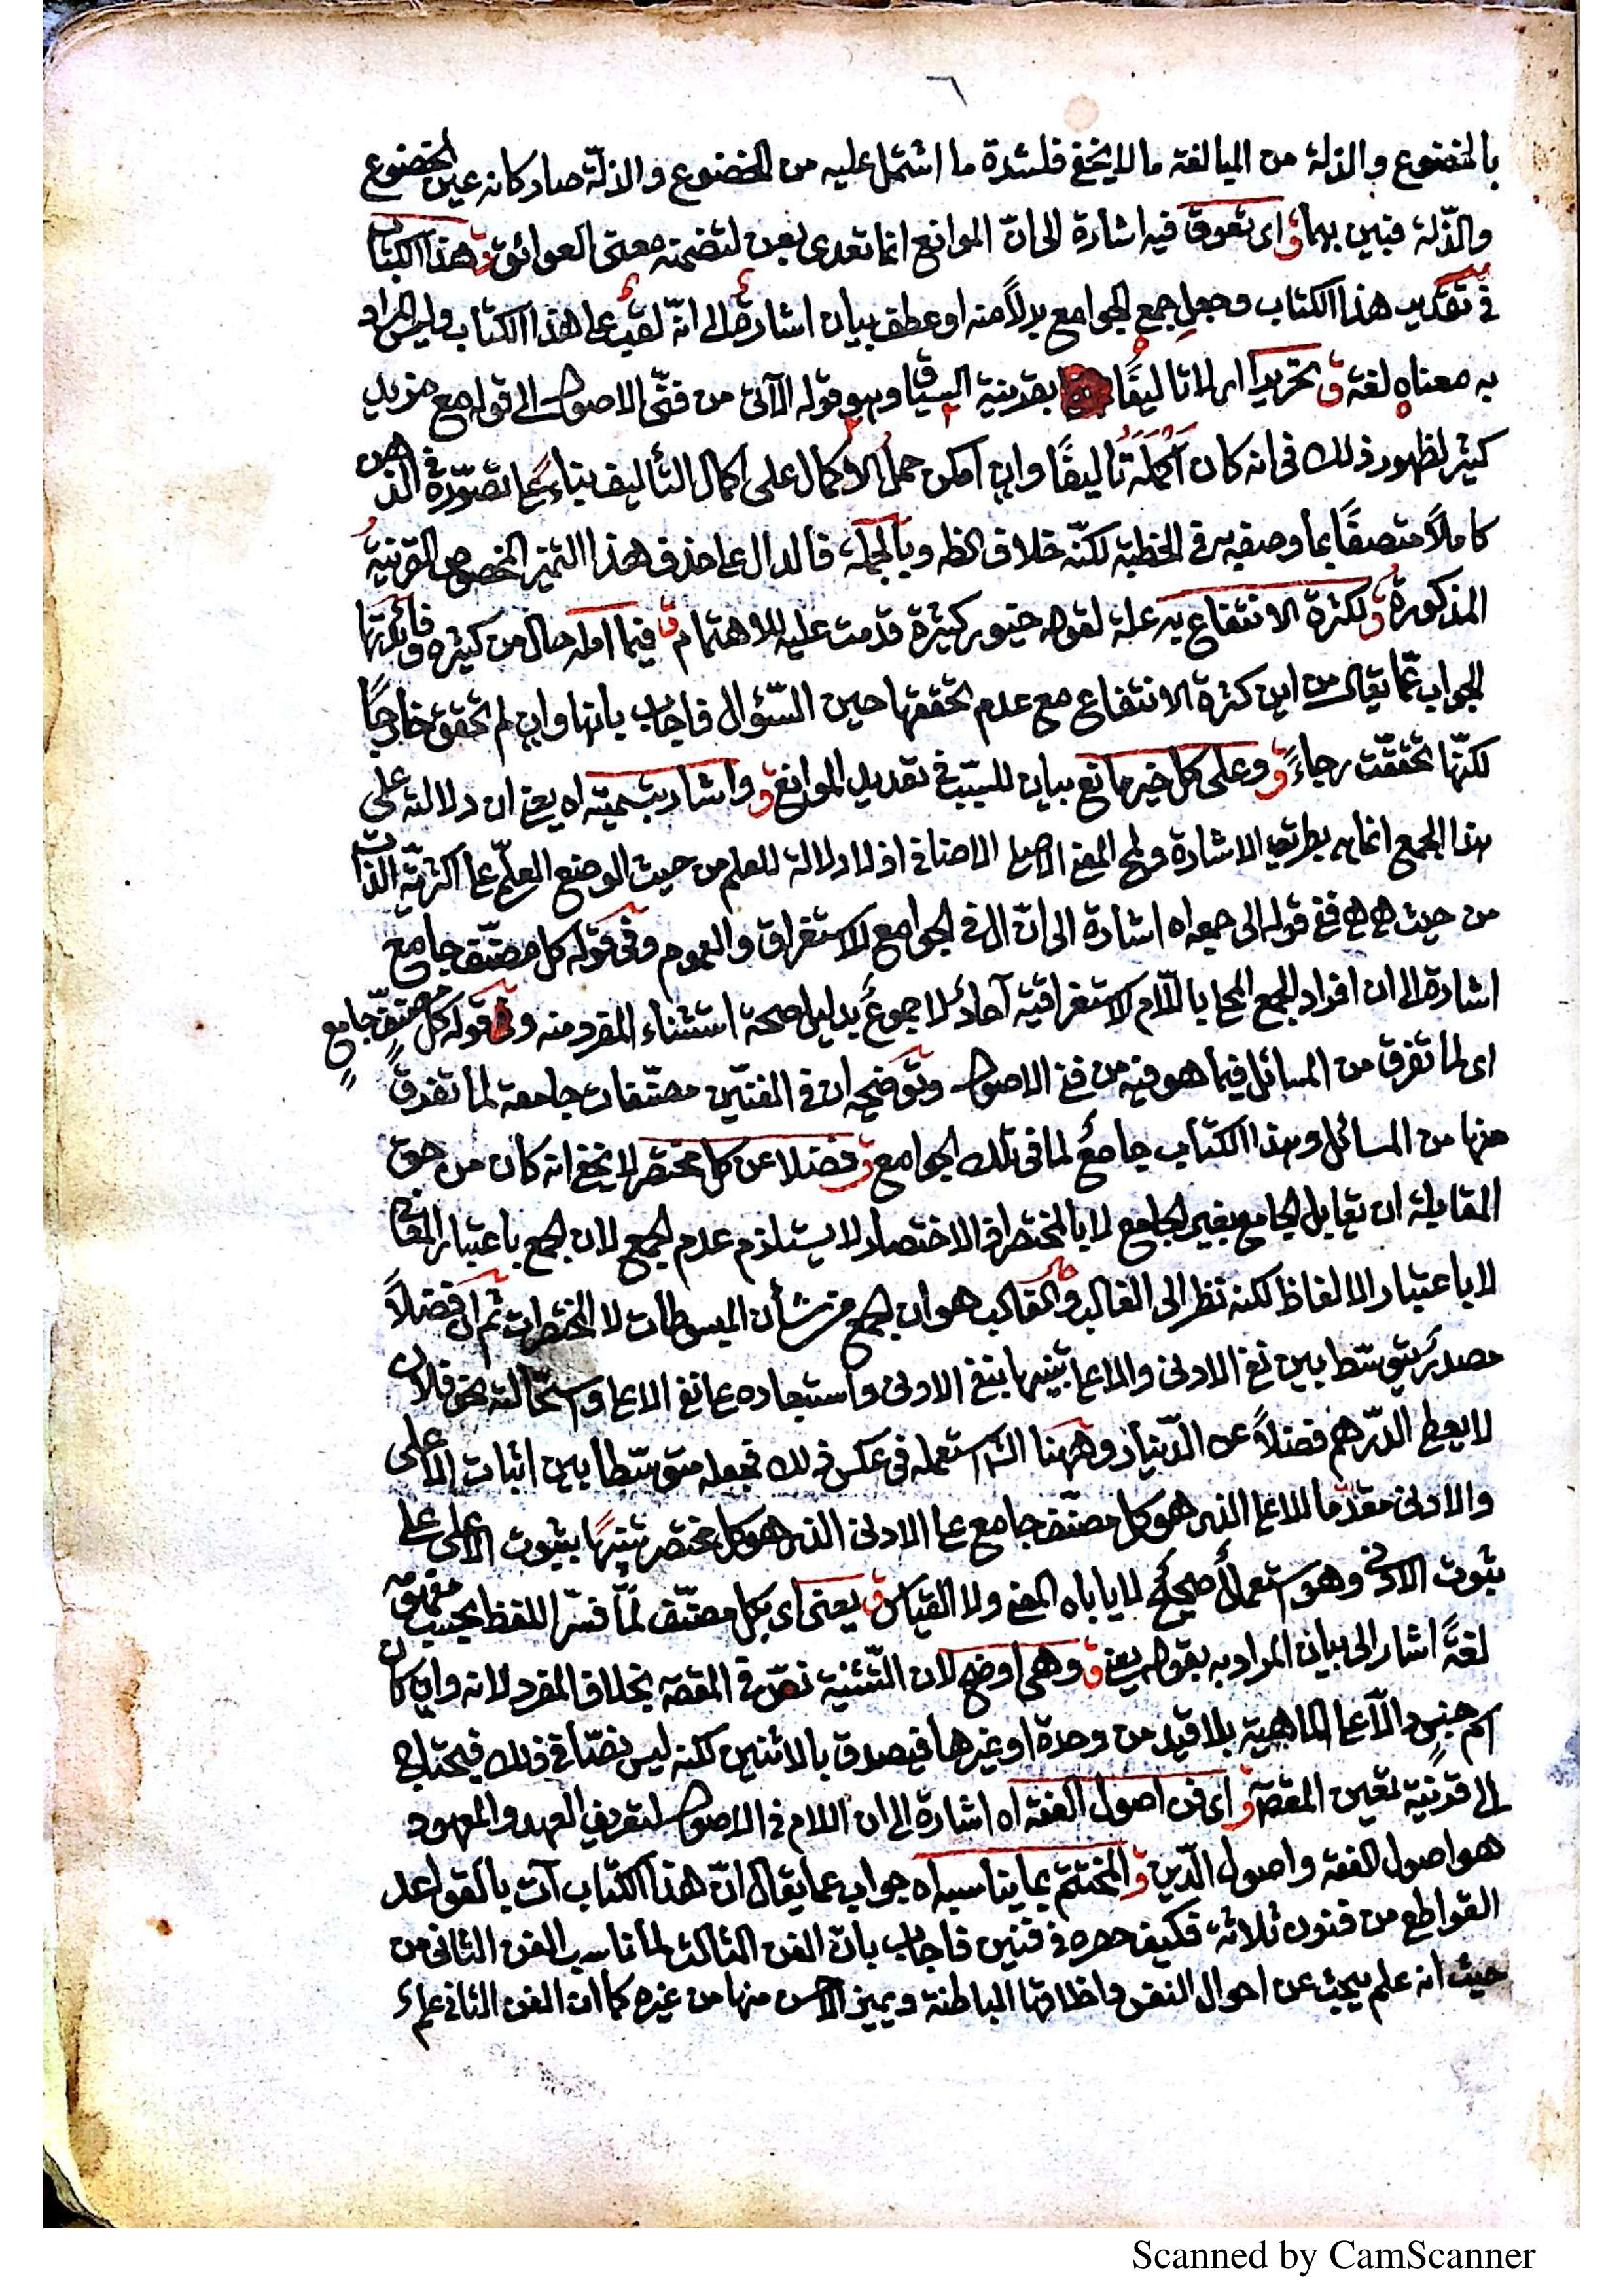 ٦
بالخضوع والذلة من المبالغة ما لا يخفى فلشدة ما اشتمل عليه من الخضوع والذلّة صار كانه عين الخضوع
والذّلة فبين بهما ق اى تعوق فيه اشارة الى انّ الموانع انما تعدى بعن لتضمنه معنى العوائق ق هذا الكتاب
فى تقديره هذا الكتاب وجعل جمع الجوامع بدلاً منه او عطف بيان اشارة الى انّه لقب على هذا الكتاب وليس المراد
به معناه لغة ق تحريرا اى لا تاليفًا بقرينة السياق وهو قوله الآتى من فنّى الاصول الى قوله مع مزيد
كثير لظهور ذلك فى انه كان اكمله تاليفًا وان امكن حمل الاكمال على اكمال التأليف بناء على تصوّره فى الذهن
كاملاً متصفًا بما وصفه به فى الخطبة لكنّه خلاف الظ وبالجملة فالدال على حذف هذا التميز المخصوص القرينة
المذكورة ق لكثرة الانتفاع به علة لقوله خيور كثيرة قدمت عليه للاهتمام ق فيما امله حال من كثيره وفائدتها
الجواب عمّا يقال من اين كثرة الانتفاع مع عدم تحققها حين السّؤال فاجاب بانها وان لم تحقق خارجًا
لكنّها تحققت رجاءً ق وعلى كل خير مانع بيان للسبب فى تقديم الموانع ق واشار بتسميته اه يعنى ان دلالته على
هذا الجمع انما هى بطريق الاشارة ولمح المعنى الاصلى الاضافى اذ لا دلالة للعلم من حيث الوضع العلمى على اكثر من الذات
من حيث هى هى ففى قوله الى جمعه اه اشارة الى انّ ال فى الجوامع للاستغراق والعموم وفى قوله كل مصنّف جامع
اشارة الى ان افراد الجمع المحلى باللّام الاستغراقية آحاد لا جموع بدليل صحة استثناء المفرد منه وفى قوله كل مصنّف جامع
اى لما تفرق من المسائل فيما هو فيه من فن الاصول وتوضيحه ان فى الفنّين مصنّفات جامعة لما تفرق
منها من المسائل وهذا الكتاب جامع لما فى تلك الجوامع ق فضلا عن كل مختصر لا يخفى انه كان من حق
المقابلة ان تقابل الجامع بغير الجامع لا بالمختصر اذ الاختصار لا يستلزم عدم الجمع لان الجمع باعتبار المعانى
لا باعتبار الالفاظ لكنه نظر الى الغالب والغالب هو ان الجمع من شأن المبسوطات لا المختصرات ثم ان فضلاً
مصدر يتوسّط بين نفى الادنى والاعلى تنبيها بنفى الادنى واستبعاده على نفى الاعلى واستحالته نحو فلان
لا يعطى الدّرهم فضلاً عن الدّينار وههنا الش استعمله فى عكس ذلك فجعله متوسّطا بين اثبات الاعلى
والادنى مقدّما للاعلى الذى هو كل مصنّف جامع على الادنى الذى هو كل مختصر تنبيهًا بثبوت الاعلى على
ثبوت الادنى وهو استعمال صحيح لا ياباه المعنى ولا القياس ق يعنى اى بكل مصنّف لمّا فسّر اللفظ بحسب مفهومه
لغةً اشار الى بيان المراد به بقوله يعنى ق وهى اوضح لان التّثنية نصّ فى المقصد بخلاف المفرد لانه وان كان
اسم جنس دالّا على الماهية بلا قيد من وحدة او غيرها فيصدق بالاثنين لكنه ليس نصّا فى ذلك فيحتاج
الى قرينة تعين المقصد ق اى فن اصول الفقه اه اشارة الى ان اللام فى الاصول لتعريف العهد والمعهود
هو اصول الفقه واصول الدّين ق والمختتم بما يناسبه اه جواب عما يقال انّ هذا الكتاب آت بالقواعد
القواطع من فنون ثلاثة فكيف حصره فى فنّين فاجاب بانّ الفن الثالث لما ناسب الفن الثانى من
حيث انه علم يبحث عن احوال النفس واخلاقها الباطنة ويميز الاحسن منها من غيره كما ان الفن الثانى علم
Scanned by CamScanner